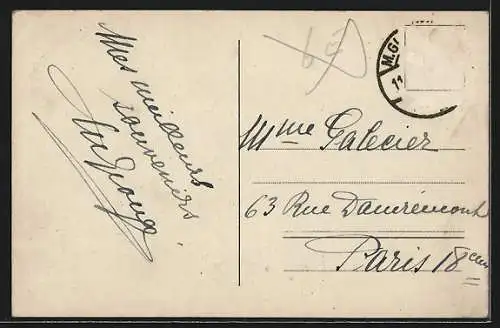 Mes meilleurs
souvenirs
M.Gl
11
Mme Galecier
63 Rue Damrémont
Paris 18em